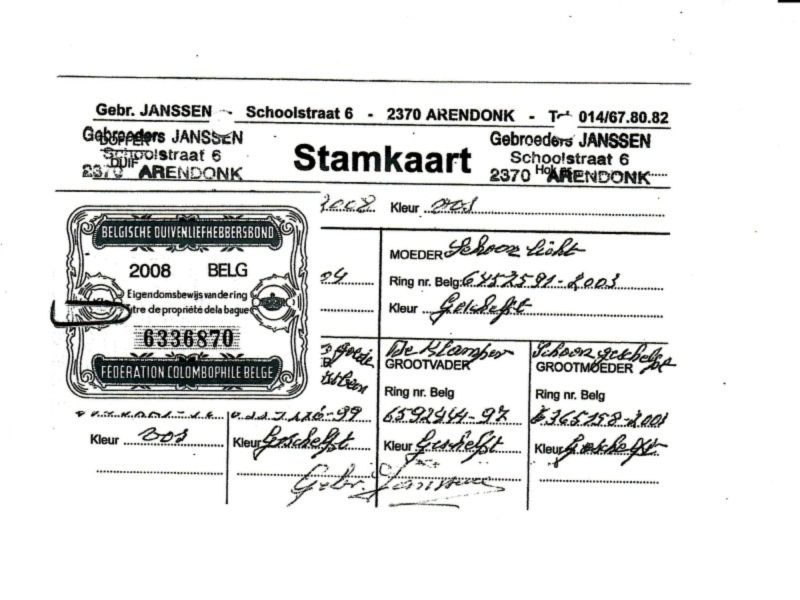 Gebr. JANSSEN - Schoolstraat 6 - 2370 ARENDONK - 014/67.80.82
Gebroeders JANSSEN
Schoolstraat 6
2370 ARENDONK
DOFFER
DUIF
Stamkaart
Gebroeders JANSSEN
Schoolstraat 6
2370 ARENDONK
2008 Kleur vos
BELGISCHE DUIVENLIEFHEBBERSBOND
2008 BELG
Eigendomsbewijs van de ring
Titre de propriété de la bague
6336870
FÉDÉRATION COLOMBOPHILE BELGE
04
MOEDER Schoon licht
Ring nr. Belg: 6452591-2003
Kleur Geschelpt
goede
De Klamper
GROOTVADER
Ring nr. Belg
6592444-97
Kleur Geschelpt
Schoon geschelpt
GROOTMOEDER
Ring nr. Belg
6365158-2001
Kleur Geschelpt
Kleur vos
-99
Kleur Geschelpt
Gebr. Janssen